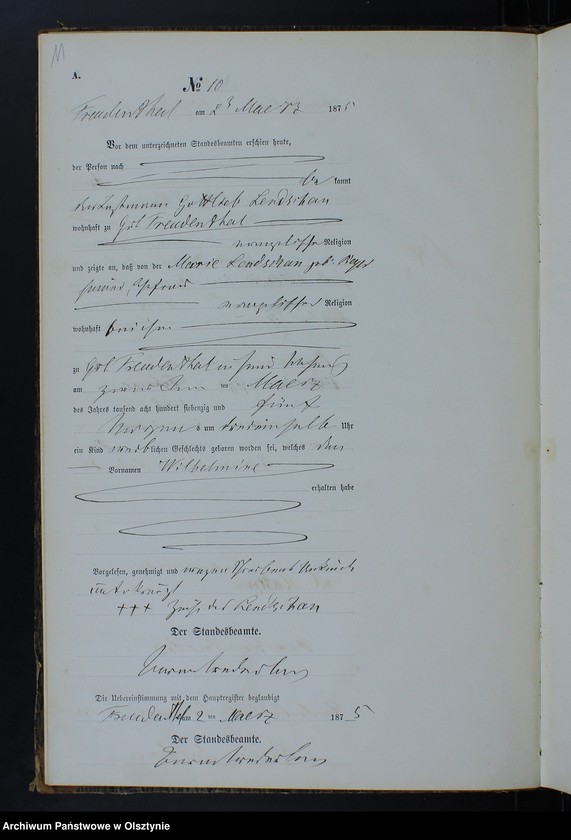 11
A.
№ 10
Freudenthal am 23 Maerz 1875
Vor dem unterzeichneten Standesbeamten erschien heute,
der Person nach
be kannt
der Instmann Gottlieb Lendschan
wohnhaft zu Gut Freudenthal
evangelischer Religion
und zeigte an, daß von der Marie Lendschan geb.
seiner Ehefrau
evangelischer Religion
wohnhaft bei ihm
zu Gut Freudenthal in
am ten Maerz
des Jahres tausend acht hundert siebenzig und fünf
Morgens um Uhr
ein Kind weiblichen Geschlechts geboren worden sei, welches den
Vornamen Wilhelmine
erhalten habe
Vorgelesen, genehmigt und wegen
+++ des Lendschan
Der Standesbeamte.
Die Uebereinstimmung mit dem Hauptregister beglaubigt
Freudenthal am 2 ten Maerz 1875
Der Standesbeamte.
Archiwum Państwowe w Olsztynie